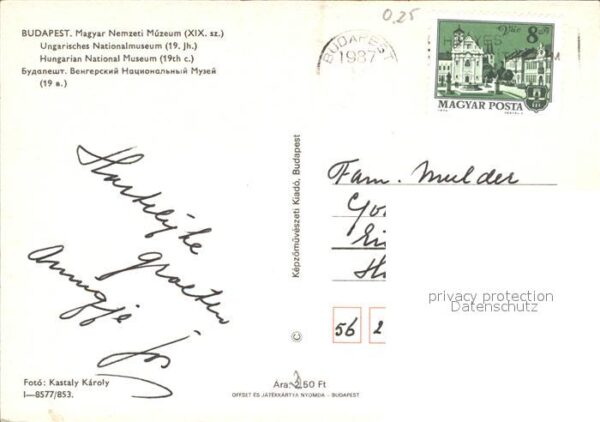 BUDAPEST. Magyar Nemzeti Múzeum (XIX. sz.)
Ungarisches Nationalmuseum (19. Jh.)
Hungarian National Museum (19th c.)
Будапешт. Венгерский Национальный Музей
(19 в.)
0,25
BUDAPEST
1987
8 Ft
MAGYAR POSTA
Hartelijke
groeten
Képzőművészeti Kiadó, Budapest
Fam. Mulder
56 2
privacy protection
Datenschutz
Fotó: Kastaly Károly
I—8577/853.
Ára: 2,50 Ft
OFFSET ÉS JÁTÉKKÁRTYA NYOMDA - BUDAPEST